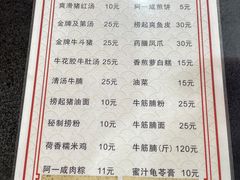 爽滑猪红汤 10元 阿一咸煎饼 5元
金牌及第汤 25元 捞起爽鱼皮 30元
金牌牛斗猪 25元 药膳凤爪 30元
牛花腩牛肚汤 25元 香煎萝白糕 15元
清汤牛腩 25元 油菜 15元
捞起猪油面 10元 牛筋腩粉 25元
秘制捞粉 10元 牛筋腩面 25元
荷香糯米鸡 10元 牛筋腩(斤) 120元
阿一咸肉粽 11元 蜜汁龟苓膏 10元